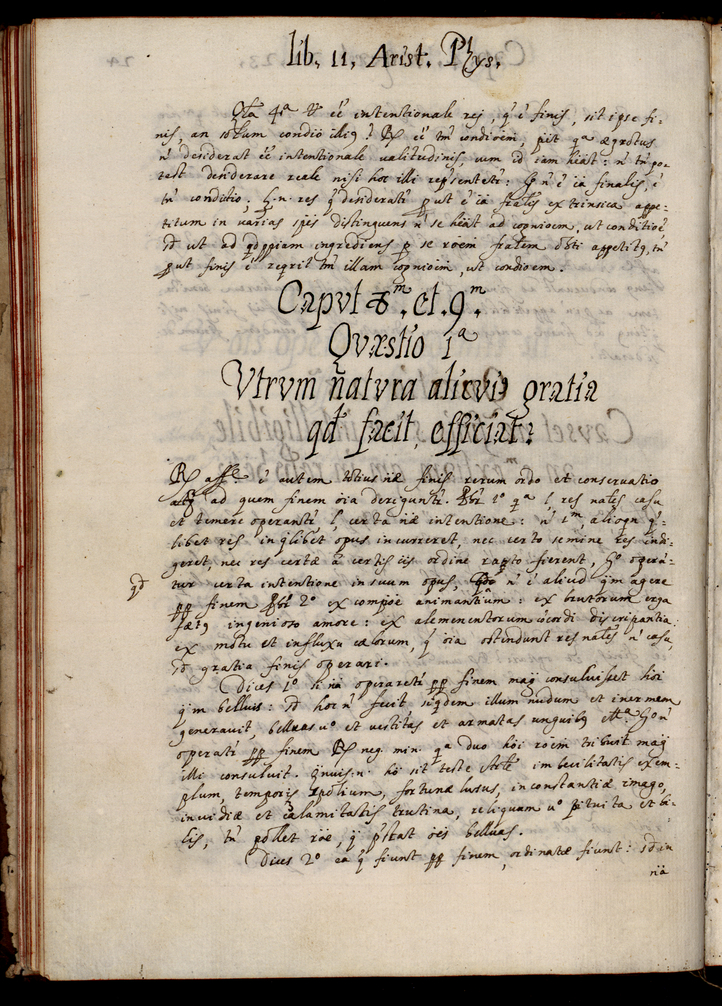 lib. 11. Arist. Phys.
Qta 4ª Ut eē intentionale rej, q̄ ē finis, sit ipse fi-
nis, an solum condiō illiq? R. ē tm̄ condiōem, q̄a ægrotus
n̄ desiderat eē intentionale valitudinis, cum id iam hēat: n̄ tn̄ po-
test desiderare reale nisi hoc illi repsentetr: n̄ ē cā finalis, ē
tn̄ conditio; res q̄ desideratr put ē cā extrinsica appe-
titum in varias spēs distinguens n̄ se hēat ad cognioem, ut conditioē,
sd ut ad ingrediens p se roēm appetitq, tn̄
put finis ē reqrit tm̄ illam cognioēm, ut condioem.
Capvt 8.m et. 9.m
Qvæstio 1ª
Vtrvm natvra alicvis gratia
qd facit, efficiat?
R. affē. ē autem totius nāe finis rerum ordo et conservatio
atq ad quem finem oīa deriguntr. Pbr 1º qª l res nales casu
et temere operantr l, certa nāe intentione: n̄ 1m, alioqn q̄-
libet res in q̄libet opus incurreret, nec certo semine res indi-
geret, nec res certæ a certis cīs ordine rapto fierent, gº operā-
tur certa intentione in suum opus, qd n̄ ē aliud q̄m agere
pp finem Pbr 2º ex compōe animantium: ex brutorum erga
fætq ingenioso amore: ex elementorum cōcordi discripantia:
ex mōtu et influxu cælorum, q̄ oīa ostendunt res nales n̄ casu,
sd gratia finis operari.
Dices 1º si nā operaretr pp finem magj consuluisset hoī
q̄m belluis: sd hoc n̄ fecit siqdem illum nudum et inermem
generavit, belluas uº et vestitas et armatas unguibq ettª. gº n̄
operatr pp finem R. neg. min. qª duo hōi roēm tribuit magj
illi consuluit. Qnuis .n. hō sit teste Artle imbecilitatis exem-
plum, temporis spolium, fortunæ lusus, inconstantiæ imago,
invidiæ et calamitatis trutina, reliquum uº pituita et bi-
lis, tn̄ pollet rōe, q̄ pstat oēs belluas.
Dices 2º ea q̄ fiunt pp finem, ordinatæ fiunt: sd in
nā